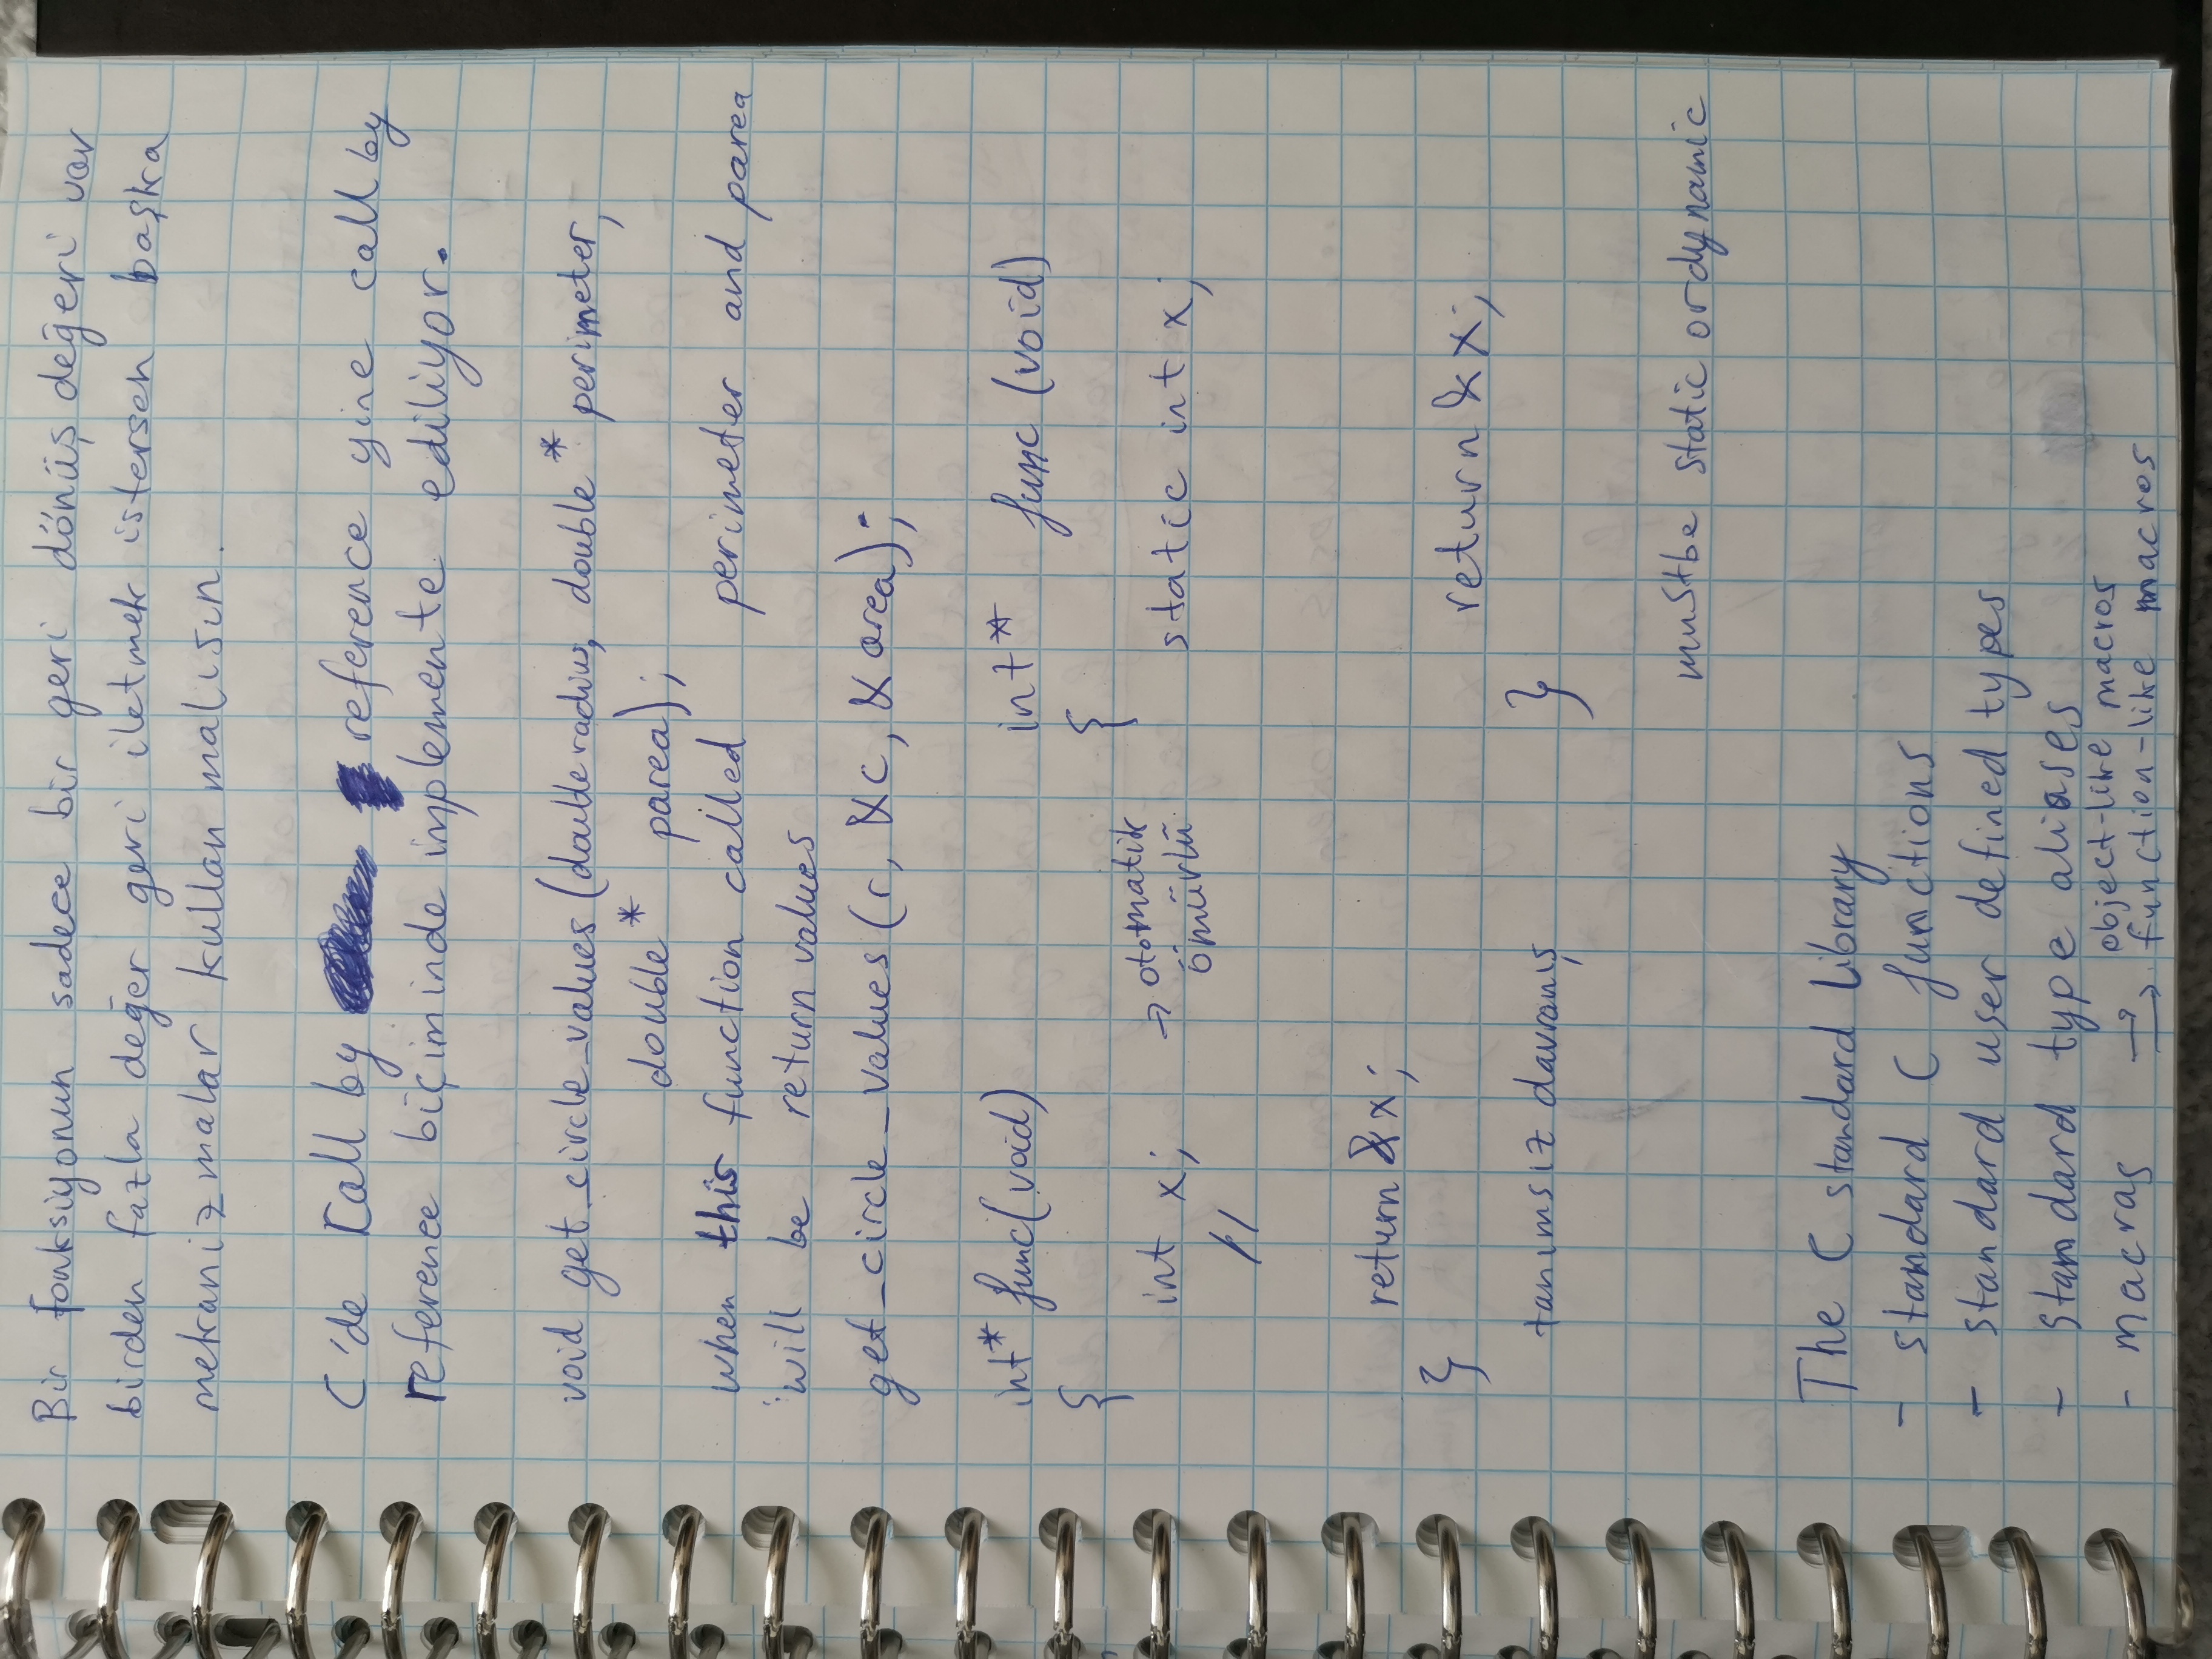 Bir fonksiyonun sadece bir geri dönüş değeri var
birden fazla değer geri iletmek istersen başka
mekanizmalar kullanmalısın.
C'de Call by reference yine call by
reference biçiminde implemente ediliyor.
void get_circle_values (double radius, double * perimeter,
double * parea);
when this function called perimeter and parea
will be return values
get_circle_values (r, &c, & area);
int* func(void)
{
int x; → otomatik
ömürlü
//
return &x;
}
tanımsız davranış
int* func (void)
{
static int x;
return &x;
}
must be static or dynamic
The C standard Library
- standard C functions
- standard user defined types
- standard type aliases
- macras → object-like macros
→ function-like macros